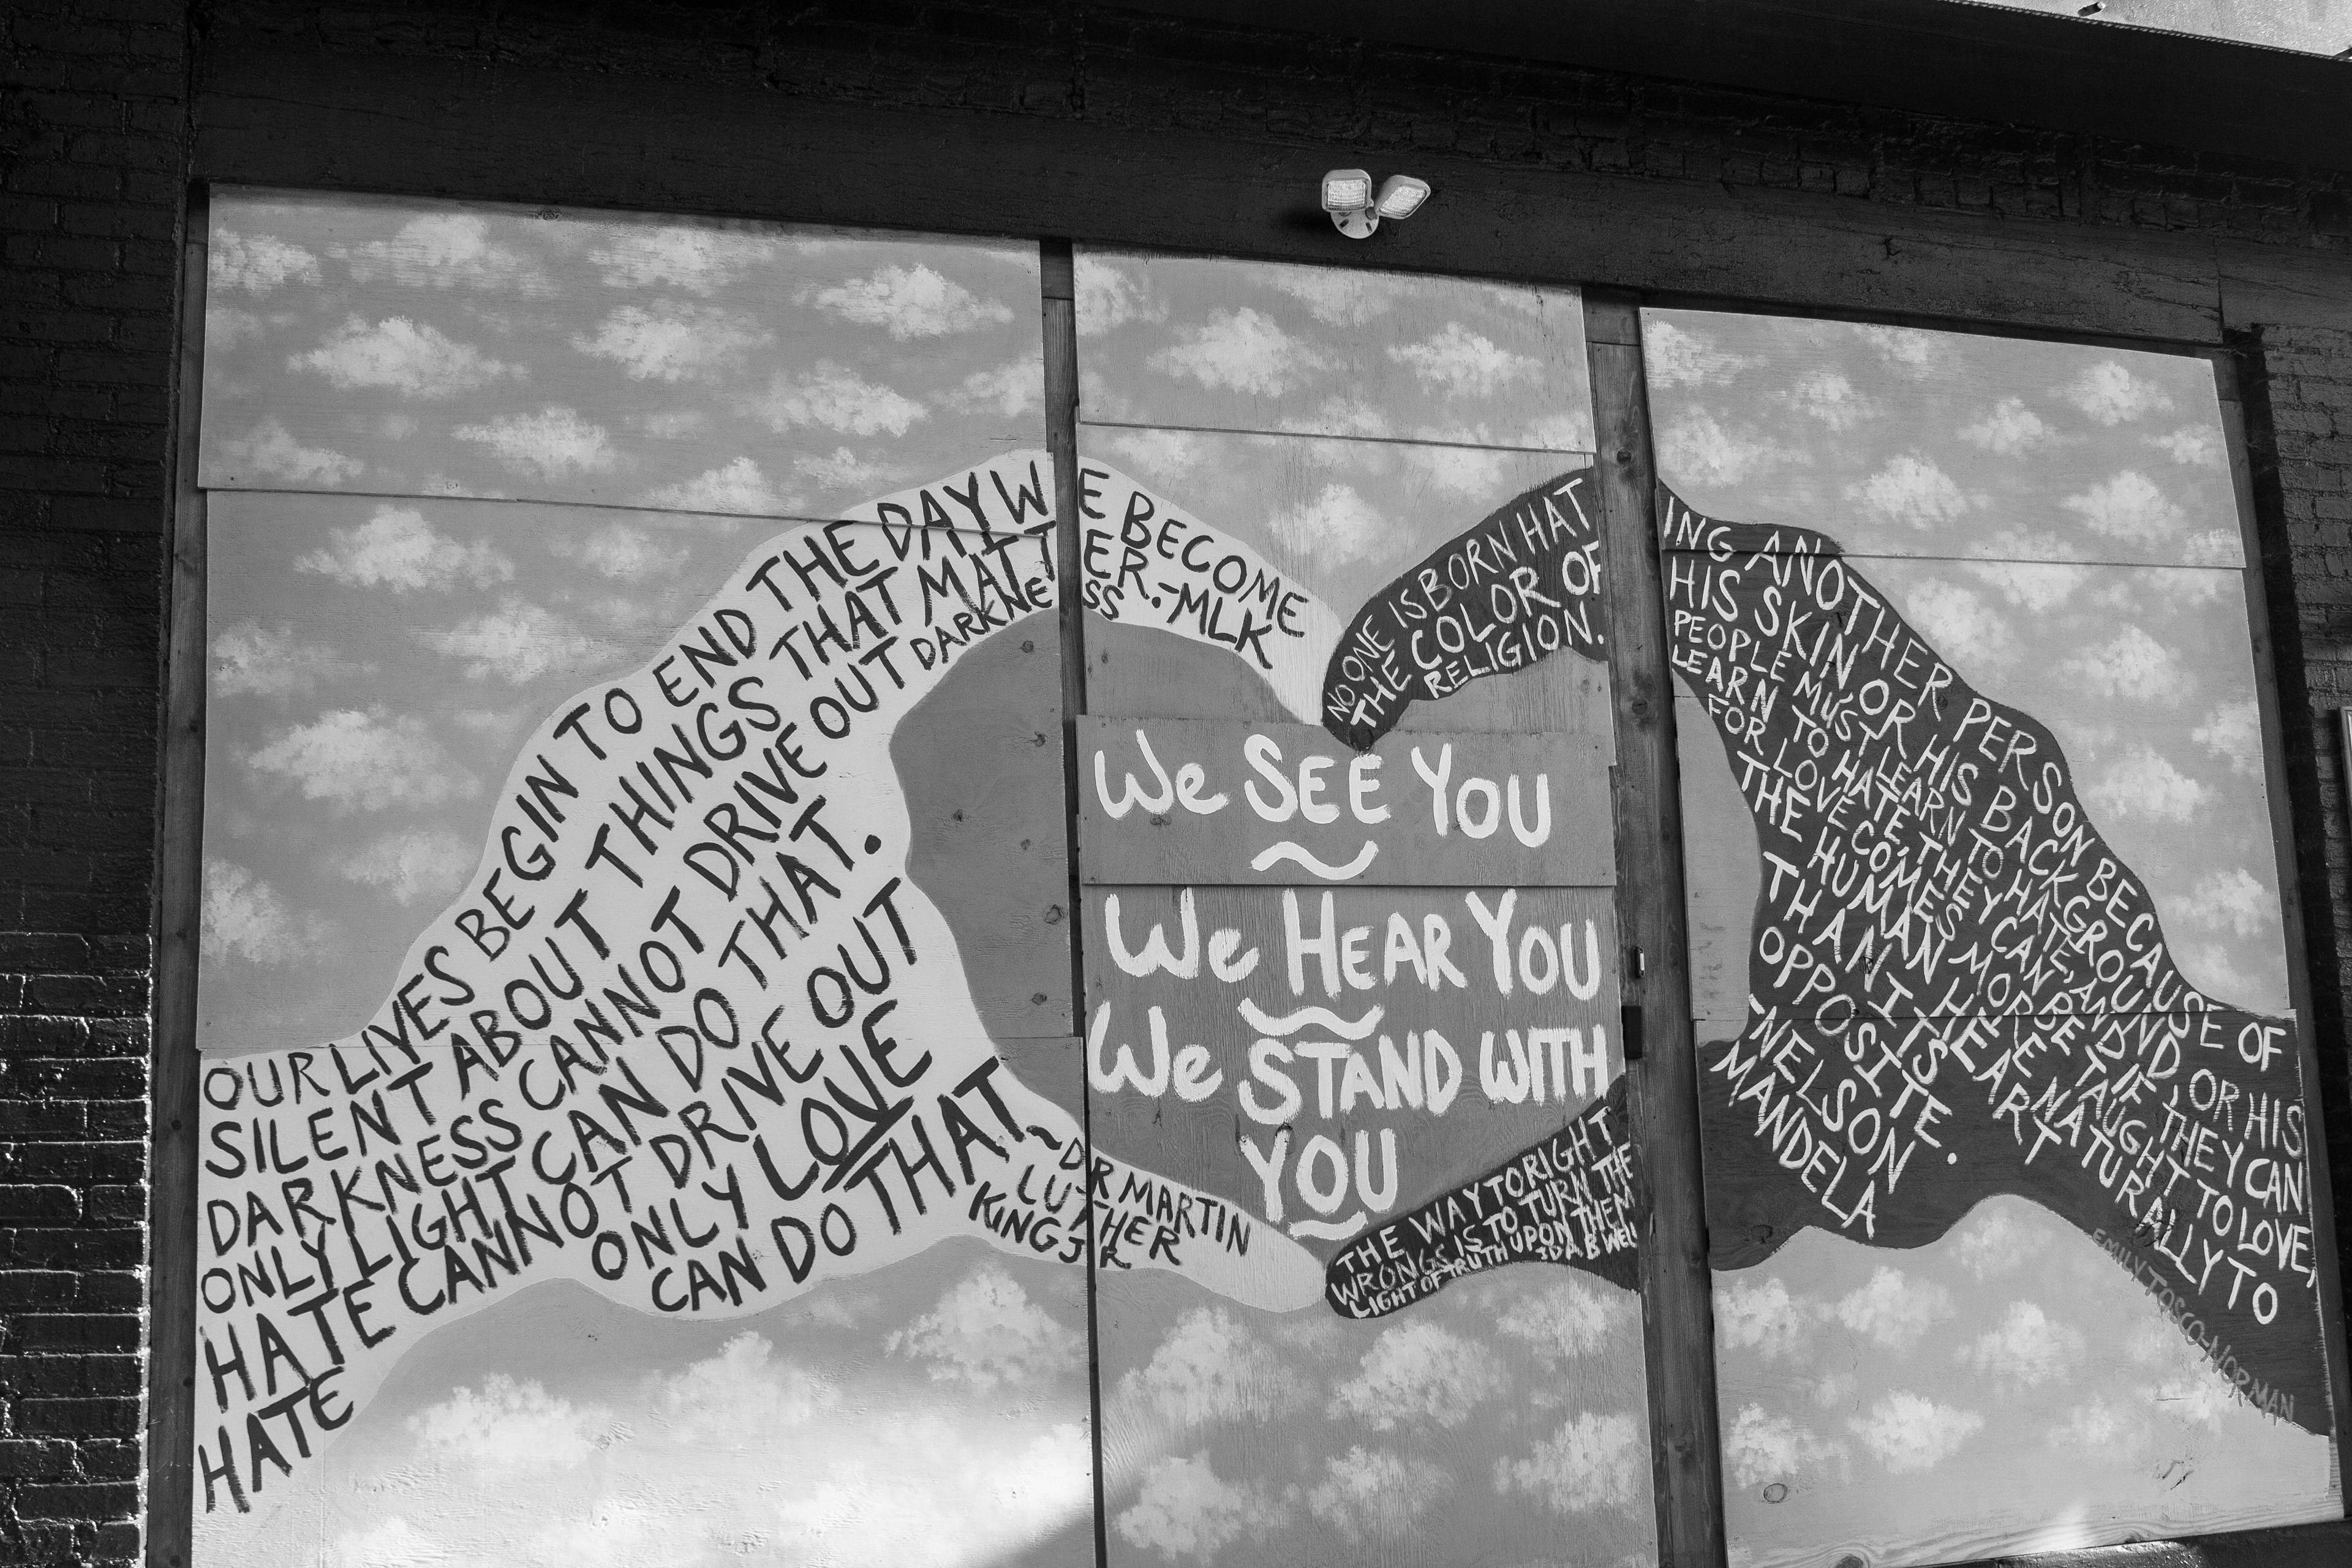 OUR LIVES BEGIN TO END THE DAY WE BECOME
SILENT ABOUT THINGS THAT MATTER.-MLK
DARKNESS CANNOT DRIVE OUT DARKNESS
ONLY LIGHT CAN DO THAT.
HATE CANNOT DRIVE OUT
HATE ONLY LOVE
CAN DO THAT ~DR MARTIN
LUTHER
KING JR
We SEE YOU
We HEAR YOU
We STAND WITH
YOU
NO ONE IS BORN HATING ANOTHER PERSON BECAUSE OF
THE COLOR OF HIS SKIN OR HIS BACKGROUND, OR HIS
RELIGION. PEOPLE MUST LEARN TO HATE, AND IF THEY CAN
LEARN TO HATE, THEY CAN BE TAUGHT TO LOVE,
FOR LOVE COMES MORE NATURALLY TO
THE HUMAN HEART
THAN ITS
OPPOSITE.
-NELSON
MANDELA
THE WAY TO RIGHT
WRONGS IS TO TURN THE
LIGHT OF TRUTH UPON THEM
IDA B WELL
EMILY TOSCO-NORMAN